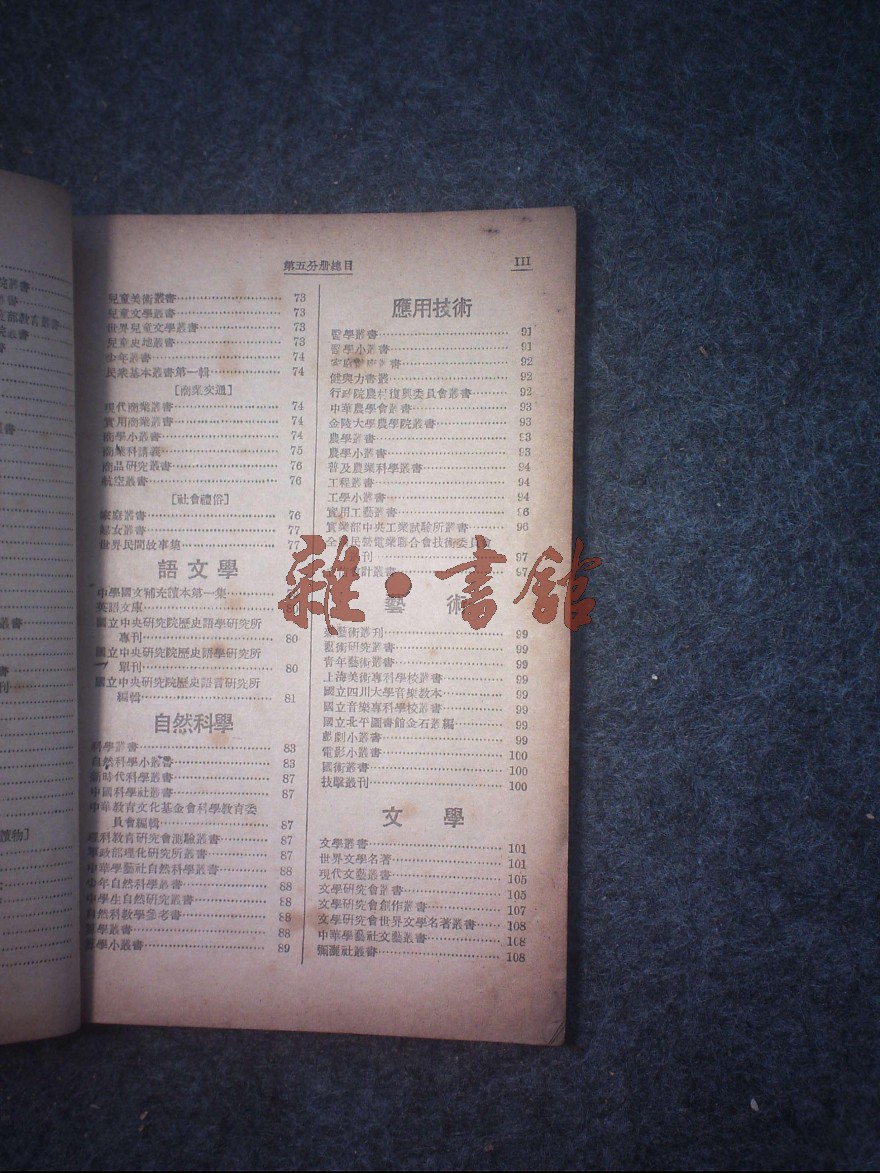 第五分册總目
III
兒童美術叢書 73
兒童文學叢書 73
世界兒童文學叢書 73
兒童史地叢書 73
少年叢書 74
民衆基本叢書第一輯 74
[商業交通]
現代商業叢書 74
實用商業叢書 74
商學小叢書 74
商業科講義 75
商品研究叢書 76
航空叢書 76
[社會禮俗]
家庭叢書 76
婦女叢書 77
世界民間故事集 77
語文學
中學國文補充讀本第一集
英語文庫
國立中央研究院歷史語學研究所
專刊 80
國立中央研究院歷史語學研究所
單刊 80
國立中央研究院歷史語言研究所
編輯 81
自然科學
科學叢書 83
自然科學小叢書 83
新時代科學叢書 87
中國科學社叢書 87
中華教育文化基金會科學教育委
員會編輯 87
理科教育研究會測驗叢書 87
軍政部理化研究所叢書 87
中華學藝社自然科學叢書 88
少年自然科學叢書 88
中學生自然研究叢書 88
自然科教學參考書 88
算學叢書 88
算學小叢書 89
應用技術
醫學叢書 91
醫學小叢書 91
叢書 92
健與力叢書 92
行政院農村復興委員會叢書 92
中華農學會叢書 93
金陵大學農學院叢書 93
農學叢書 93
農學小叢書 93
普及農業科學叢書 94
工程叢書 94
工學小叢書 94
實用工藝叢書 96
實業部中央工業試驗所叢書 96
全國民營電業聯合會技術委員會
叢刊 97
會計叢書 97
藝術
藝術叢刊 99
藝術研究叢書 99
青年藝術叢書 99
上海美術專科學校叢書 99
國立四川大學音樂教本 99
國立音樂專科學校叢書 99
國立北平圖書館金石叢編 99
戲劇小叢書 99
電影小叢書 100
國術叢書 100
技擊叢刊 100
文學
文學叢書 101
世界文學名著 101
現代文藝叢書 105
文學研究會叢書 105
文學研究會創作叢書 107
文學研究會世界文學名著叢書 108
中華學藝社文藝叢書 108
彌灑社叢書 108
雜·書館